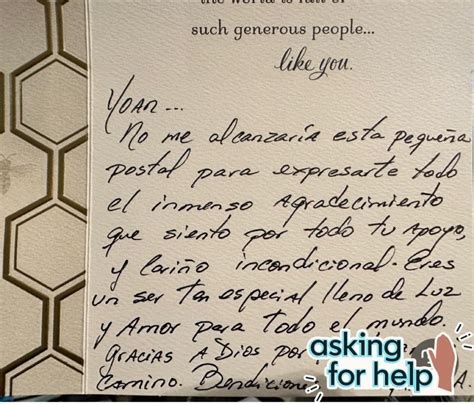 such generous people...
like you.
Yoan...
No me alcanzaría esta pequeña
postal para expresarte todo
el inmenso Agradecimiento
que siento por todo tu Apoyo,
y Cariño incondicional. Eres
un ser tan especial lleno de Luz
y Amor para Todo el mundo.
gracias A Dios por
Camino. Bendiciones A.
asking
for help